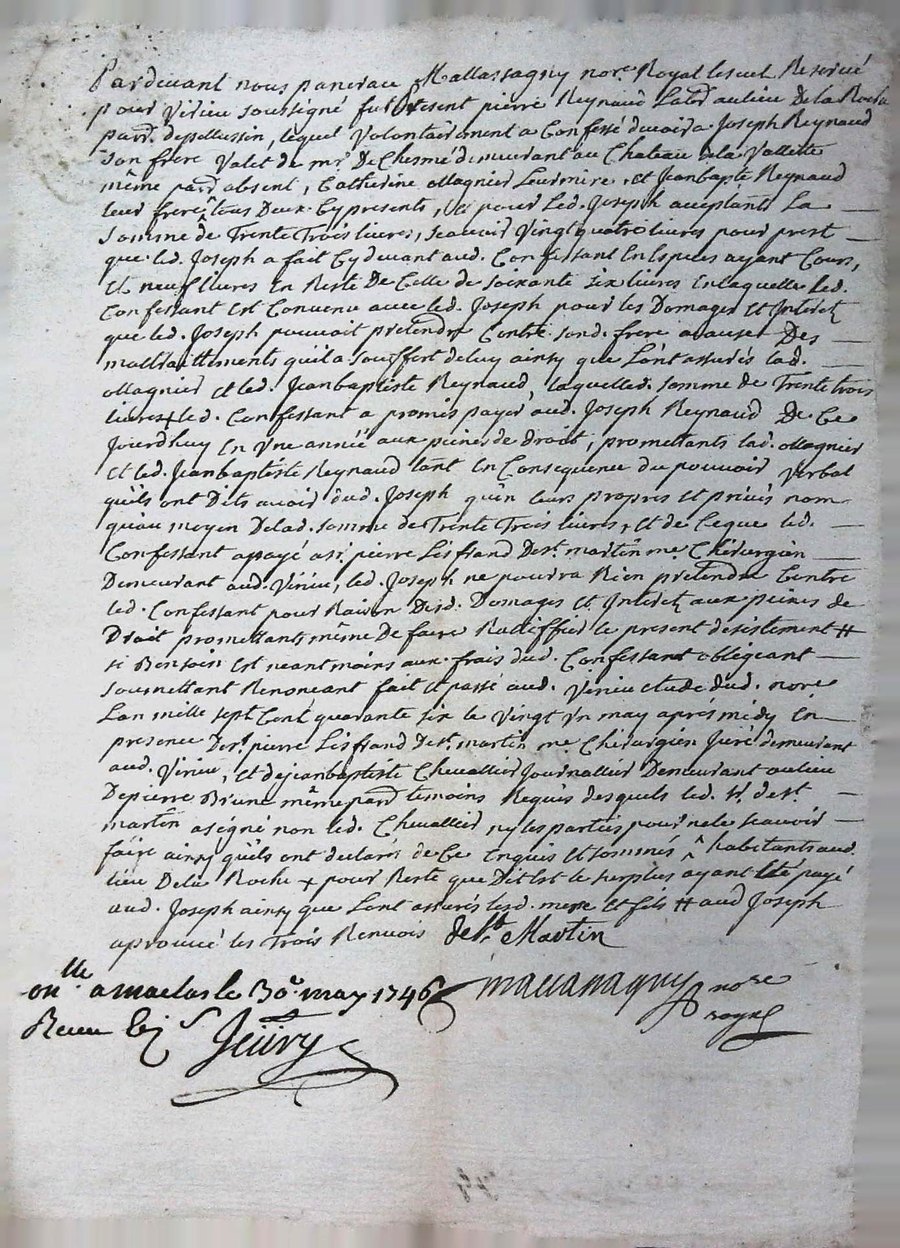 Pardevant nous pancrau Mallassagny nore. Royal Reservé
pour Virieu soussigné fut present pierre Reynaud Labr. au lieu De la Roche
parr. depellussin, lequel Volontairement a Confessé devoir a Joseph Reynaud
son frere Valet de mr. De Chesmé demeurant au Chateau dela Vallette
même parr. absent, Catherine Magnier Leur mere, et Jean bapte Reynaud
leur frere ^ tous Deux Cy presents, et pour Led. Joseph acceptants La —
somme de Trente Trois livres, scavoir Vingt quatre livres pour prest —
que led. Joseph a fait Cy devant aud. Confessant En Especes ayant Cours,
Et neuf livres En Reste De Celle de soixante six livres En laquelle led.
Confessant Est Convenu avec led. Joseph pour les Domages Et Interetz
que led. Joseph pouvoit pretendre Contre sond. frere a cause Des —
maltraittements quil a souffert deluy ainsy que Lont assurés lad. —
Magnier Et led. Jean baptiste Reynaud, laquelled. somme de Trente trois
livres + led. Confessant a promis payer aud. Joseph Reynaud De Ce
Jourdhuy En Une année aux peines de Droit, promettants lad. Magnier
Et led. Jean baptiste Reynaud tant En Consequence du pouvoir Verbal
quils ont Dits avoir dud. Joseph qu'en leurs propres Et privés nom
quau moyen Delad. somme de Trente Trois livres, Et de Ceque led. —
Confessant a payé a sr. pierre Lisfrand De st. martin me Chirurgien
Demeurant aud. Virieu, led. Joseph ne pourra Rien pretendre Contre
led. Confessant pour Raison Desd. Domages Et Interetz aux peines de
Droit promettants même De faire Rattiffier le present desistement #
si Bensoin Est neantmoins aux frais dud. Confessant obligeant —
soumettant Renonceant fait Et passé aud. Virieu Etude dud. nore
Lan mille sept Cent quarante six le Vingt Un may aprés midy En —
presence de sr. pierre Lisfrand De st. martin me Chirurgien Juré demeurant
aud. Virieu, Et de jean baptiste Chevallier Journallier Demeurant au lieu
De pierre Brune même parr. temoins Requis desquels led. sr. de st. —
martin a signé non led. Chevallier ny les parties pour ne le scavoir —
faire ainsy quils ont declarés de Ce Enquis Et sommés ^ habitants aud.
lieu Dela Roche + pour Reste que Dit Est le surplus ayant Eté payé
aud. Joseph ainsy que Lont assurés lesd. mere Et fils # aud Joseph
aprouvé les Trois Renvois de st. Martin
onlle a maclas le 30e. may 1746 mallassagny nore
Receu royal